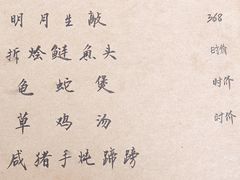 明月生敲 368
拆烩鲢魚头 时价
龟蛇煲 时价
草鸡汤 时价
咸猪手炖蹄膀